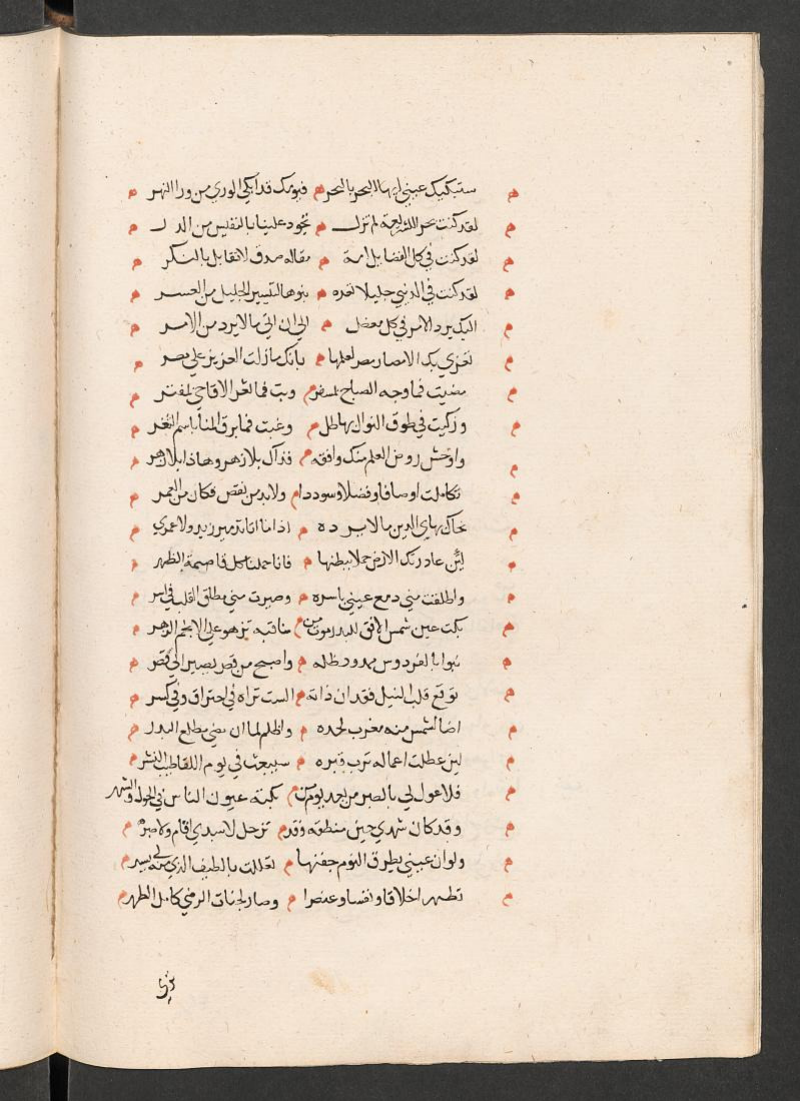 ستبكيك عيني ايها البحر بالبحر م فيومك قد ابكي الوري من ورا النهر
لقد كنت بحرا للشريعة لم تزل م تجود علينا بالنفيس من الدر
لقد كنت في كل الفضايل امة م مقاله صدق لا تقابل بالنكر
لقد كنت في الدنيي جليلا نعده م بنوها لتيسير الجليل من العسر
اليك يرد الامر في كل معضل م الي ان اتي ما لا يرد من الامر
تعزي بك الامصار مصر لعلمها م بانك ما زلت العزيز علي مصر
مضيت فما وجه الصباح بمسفر م وبت فما ثغر الاقاحي بمفتر
وزكيت في طوق النوال بها طل م وغبت فما برق المنا باسم الثغر
واوحش روض العلم منك وافقه م فذاك بلا زهر وهاذا بلا زهر
تكاملت اوصافا وفضلا وسوددا م ولا بد من نقص فكان من العمر
بهاي الدين ما لا يرده م اذا ما اتا زيد ولا عمري
لئن غادرتك الارض حملا ببطنها م فانا حملنا كل قاصمة الظهر
واطلقت مني دمع عيني باسره م وصيرت مني مطلق القلب في اسر
بكت عين شمس الافق للبدر موت من م مناقبه تزهو علي الانجم الزهر
تبوا بالفردوس ممدود ظله م واصبح من قصر يصير الي قصر
توقع قلب النيل فقدان ذاته م الست تراه في احتراق وفي كسر
اضا الشمس منه مغرب لحده م واظلم لما ان مضي مطلع البدر
لين عطلت اعماله ترب قبره م سيبعث في يوم اللقا طيب النشر
فلا عول لي بالصبر من بعد يوم من م بكته عيون الناس في الحول والشهر
وقد كان شهدي حين منطقه وقد م ترحل لا سهدي اقام ولا صبر
ولو ان عيني يطرق النوم جفنها م لعللت بالطيف الذي منه لي يسر
تطهر اخلاقا ونفسا وعنصرا م وصار لجنات الرضي كامل الطهر